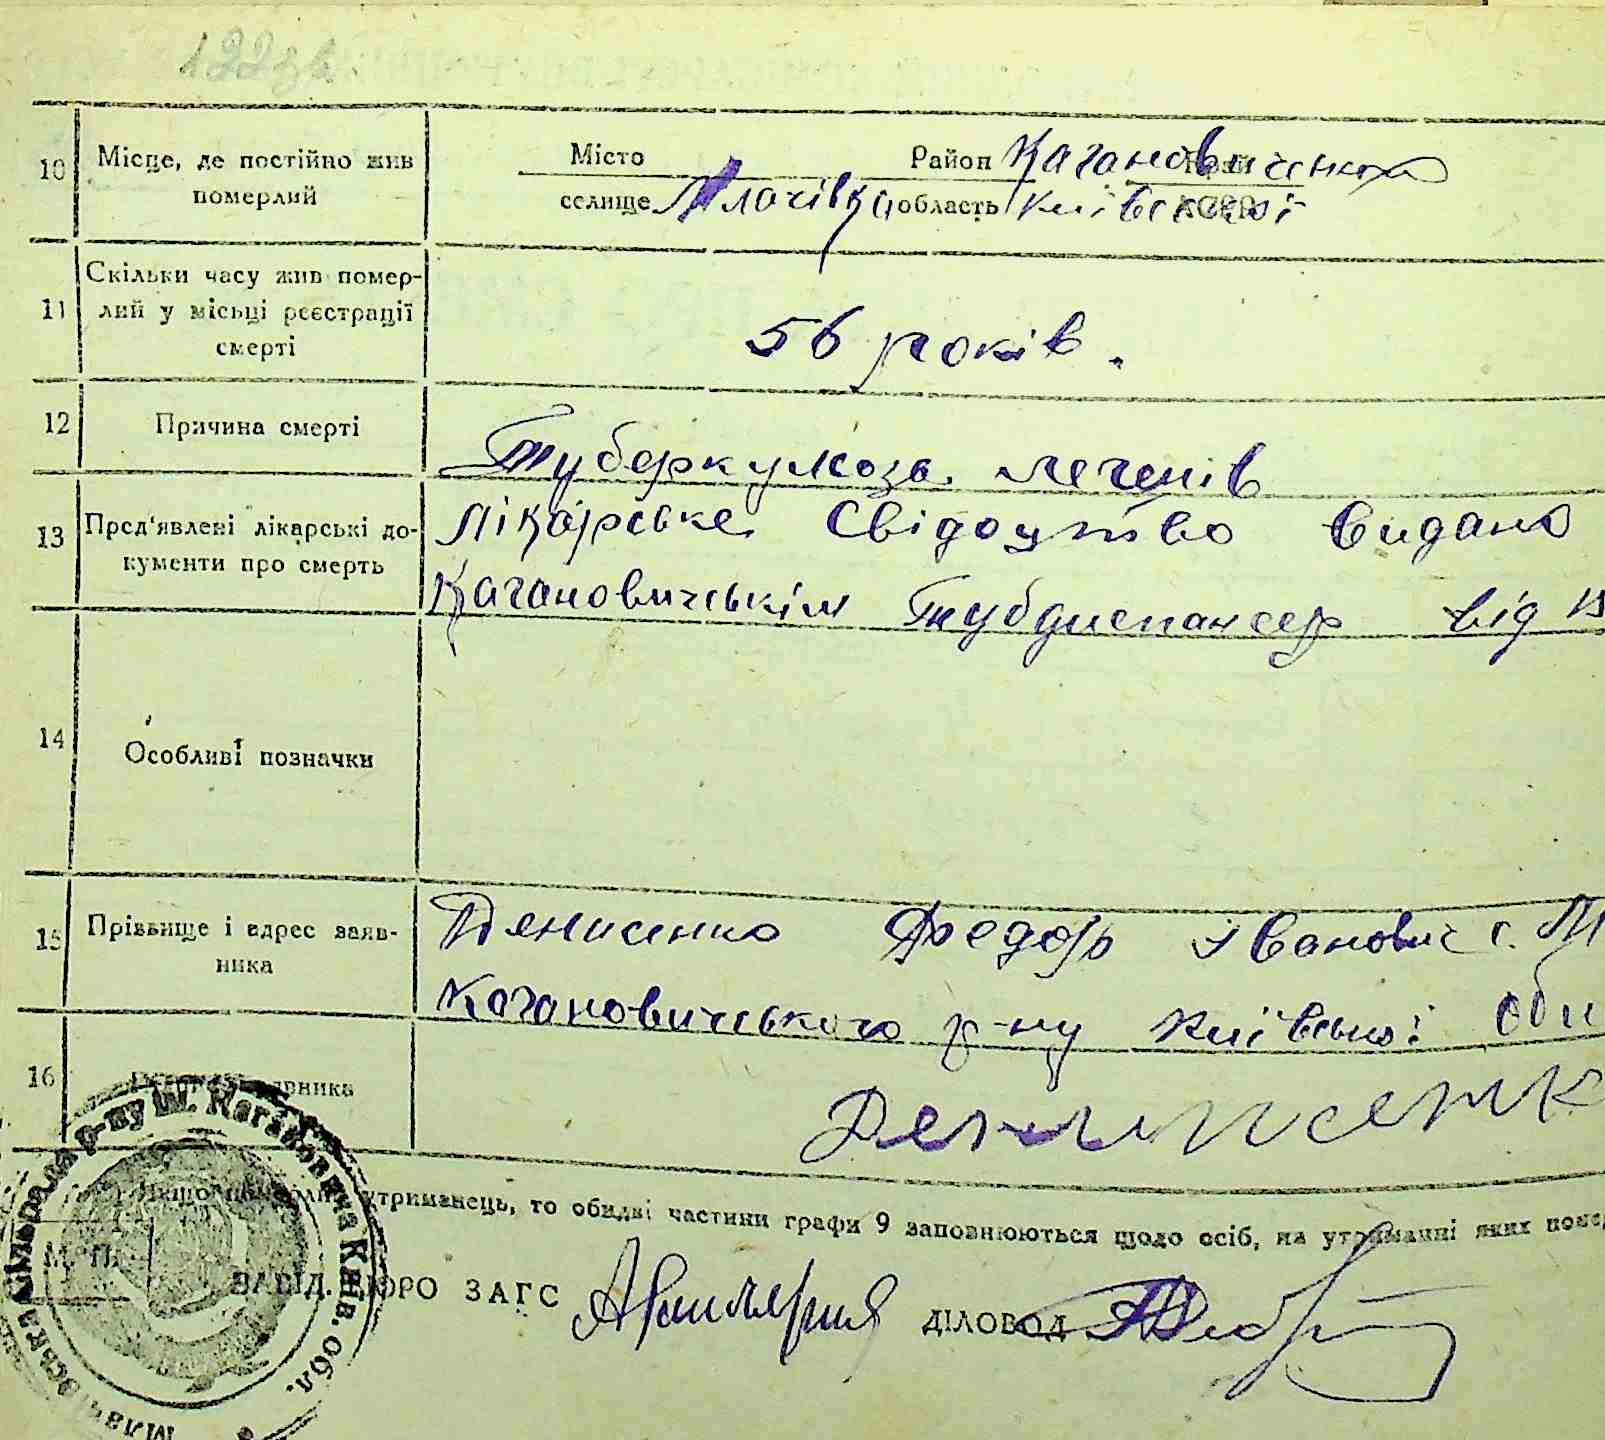 122зв.
10 Місце, де постійно жив Місто Район Кагановиченко
померлий селище Млачівка область Київської
Скільки часу жив помер-
11 лий у місці реєстрації 56 років.
смерті
12 Причина смерті Туберкульоза легенів
13 Пред'явлені лікарські до- Лікарське Свідоцтво видано
кументи про смерть Кагановичськім Тубдиспансер від 13
14 Особливі позначки
15 Прізвище і адрес заяв- Денисенко Федор Іванович с. М
ника Кагановичського р-ну Київської обл
16 Денисенк
утриманець, то обидві частини графи 9 заповнюються щодо осіб, на утриманні яких
М. П.
ЗАВІД. БЮРО ЗАГС ДІЛОВОД
сільрада р-ну ім. Кагановича Київ. обл.